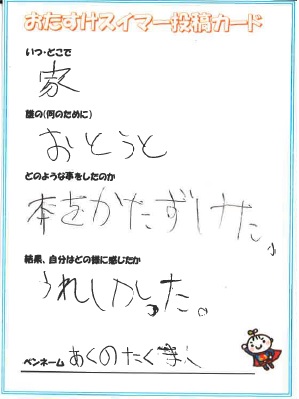 おたすけスイマー投稿カード
いつ・どこで
家
誰の(何のために)
おとうと
どのような事をしたのか
本をかたずけた。
結果、自分はどの様に感じたか
うれしかった。
ペンネーム あくのたく